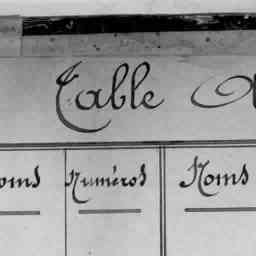 Table A
oms Numéros Noms